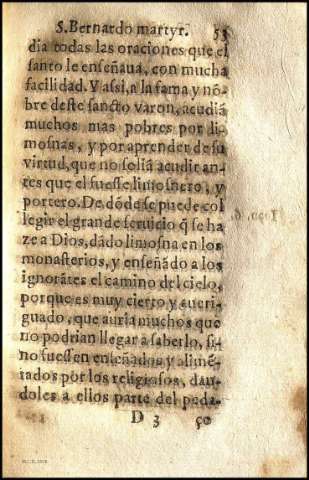 S. Bernardo martyr. 53
dia todas las oraciones que el
santo le enseñaua, con mucha
facilidad. Y assi, a la fama y nõ-
bre deste sancto varon, acudiã
muchos mas pobres por li-
mosnas, y por aprender de su
virtud, que no soliã acudir an-
tes que el fuesse limosnero, y
portero. De dõde se puede col
legir el grande seruicio q̃ se ha
ze a Dios, dãdo limosna en los
monasterios, y enseñãdo a los
ignorãtes el camino del cielo,
porque es muy cierto y aueri-
guado, que auria muchos que
no podrian llegar a saberlo, si
no fuessen enseñados y alimẽ-
tados por los religiosos, dan-
doles a ellos parte del peda-
D 3 ço